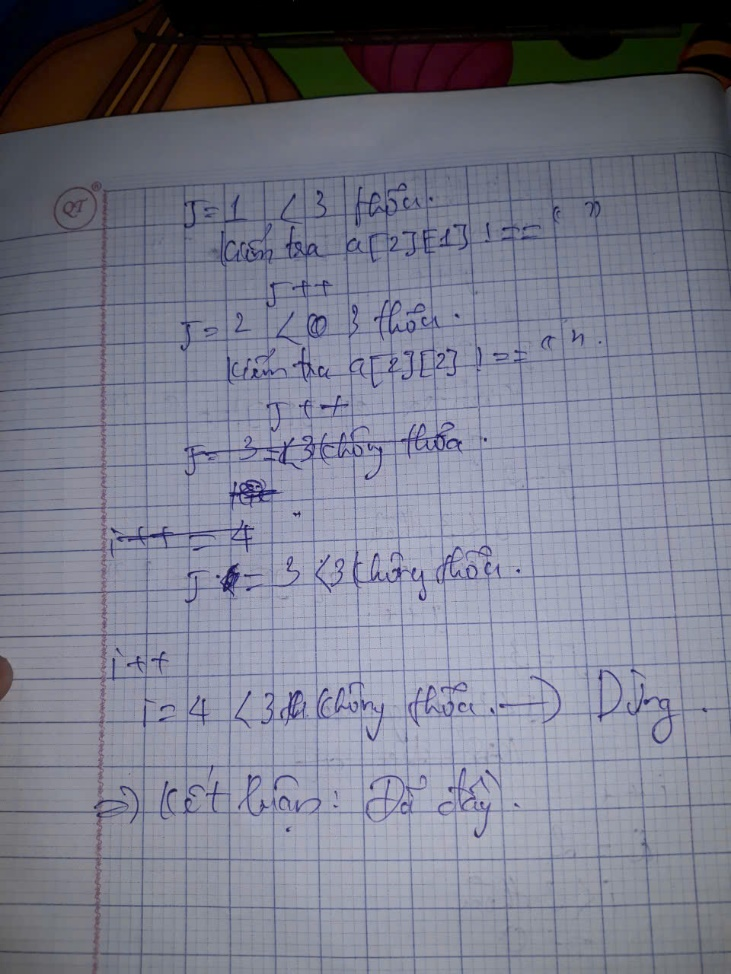 QT
J = 1 < 3 thỏa.
Kiểm tra a[2][1] !== " "
J++
J = 2 < 3 thỏa.
Kiểm tra a[2][2] !== " ".
J++
J = 3 < 3 không thỏa.
i++ = 4
J = 3 < 3 không thỏa.
i++
i = 4 < 3 không thỏa. → Dừng.
=> Kết luận: Đã đầy.